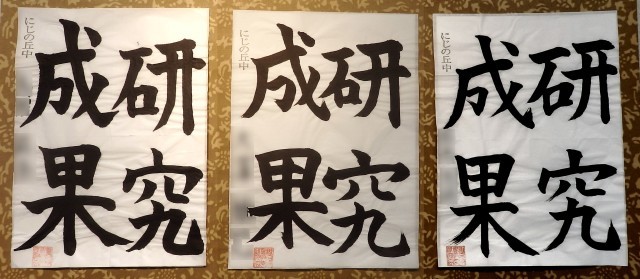 研究
成果
にじの丘中
研究
成果
にじの丘中
研究
成果
にじの丘中